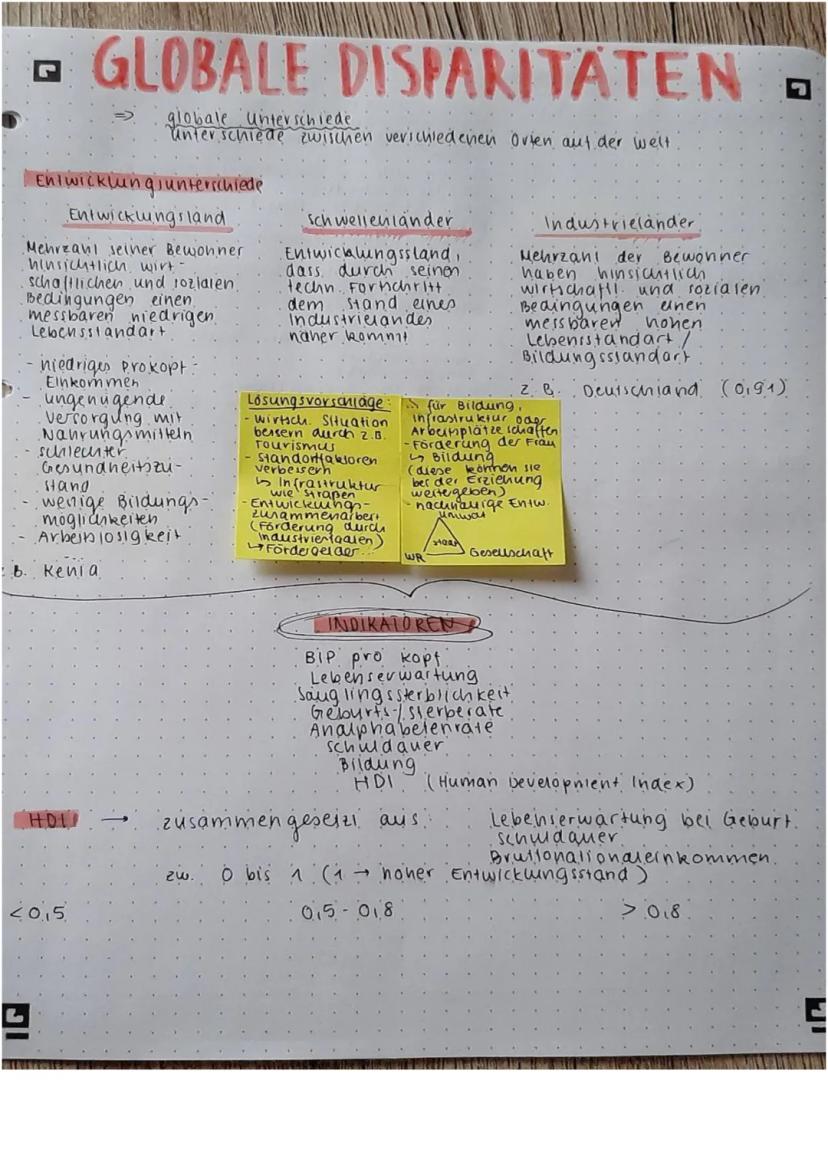 GLOBALE DISPARITÄTEN
⇒ globale Unterschiede
Unterschiede zwischen verschiedenen Orten auf der Welt
Entwicklungsunterschiede
Entwicklungsland
Mehrzahl seiner Bewohner
hinsichtlich wirt-
schaftlichen und sozialen
Bedingungen einen
messbaren niedrigen
Lebensstandart
- niedriges Prokopf-
Einkommen
- ungenügende
Versorgung mit
Nahrungsmitteln
- schlechter
Gesundheitszu-
stand
- wenige Bildungs-
möglichkeiten
- Arbeitslosigkeit
...
z.B. Kenia
Schwellenländer
Entwicklungssland,
dass durch seinen
techn. Fortschritt
dem Stand eines
Industrielandes
näher kommt
Industrieländer
Mehrzahl der Bewohner
haben hinsichtlich
wirtschaftl. und sozialen
Bedingungen einen
messbaren hohen
Lebensstandart /
Bildungsstandart
z.B. Deutschland (0,91)
Lösungsvorschläge:
- Wirtsch. Situation
bessern durch z.B.
Tourismus
- Standortfaktoren
verbessern
↳ Infrastruktur
wie Straßen
- Entwicklungs-
zusammenarbeit
(Förderung durch
Industriestaaten)
→ Fördergelder...
... für Bildung,
Infrastruktur oder
Arbeitsplätze schaffen
- Förderung der Frau
↳ Bildung
(diese können sie
bei der Erziehung
weitergeben)
- nachhaltige Entw.
Umwelt
Staat
WR
Gesellschaft
INDIKATOREN
BIP pro Kopf
Lebenserwartung
Säuglingssterblichkeit
Geburts-/Sterberate
Analphabetenrate
Schuldauer
Bildung
HDI (Human Development Index)
HDI → zusammengesetzt aus: Lebenserwartung bei Geburt
Schuldauer
Bruttonationaleinkommen
zw. 0 bis 1 (1 → hoher Entwicklungsstand)
< 0,5 0,5 - 0,8 > 0,8